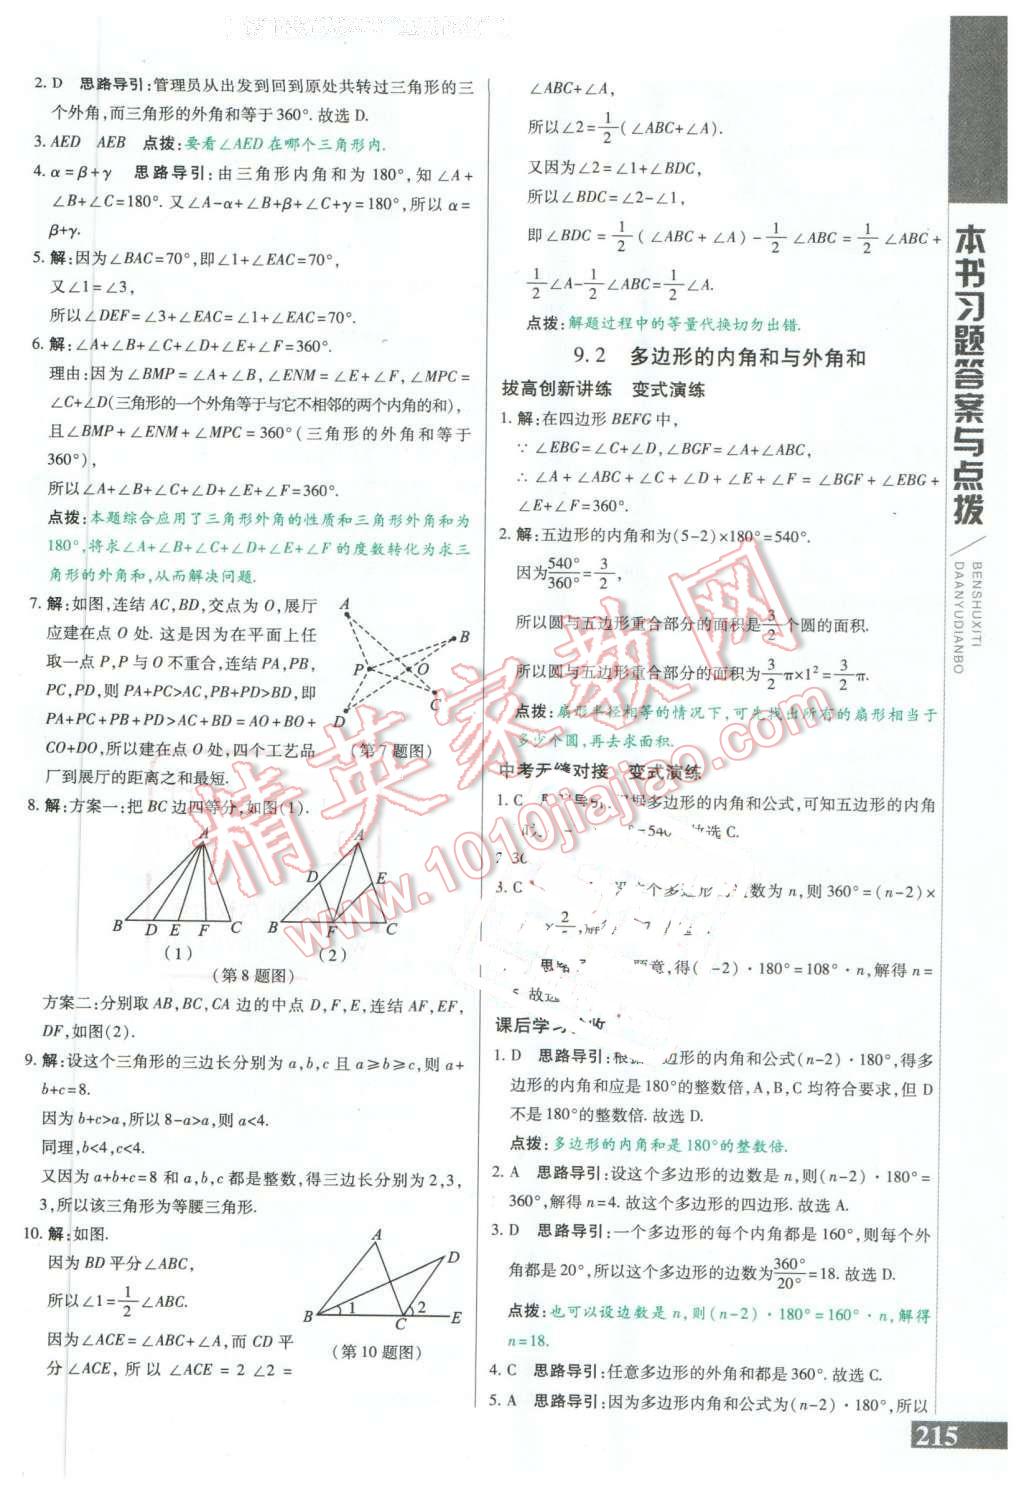 2. D 思路导引:管理员从出发到回到原处共转过三角形的三
个外角,而三角形的外角和等于360°. 故选 D.
3. AED AEB 点拨:要看∠AED在哪个三角形内.
4. α=β+γ 思路导引:由三角形内角和为180°,知∠A+
∠B+∠C=180°. 又∠A-α+∠B+β+∠C+γ=180°,所以 α=
β+γ.
5. 解:因为∠BAC=70°,即∠1+∠EAC=70°,
又∠1=∠3,
所以∠DEF=∠3+∠EAC=∠1+∠EAC=70°.
6. 解:∠A+∠B+∠C+∠D+∠E+∠F=360°.
理由:因为∠BMP=∠A+∠B,∠ENM=∠E+∠F,∠MPC=
∠C+∠D(三角形的一个外角等于与它不相邻的两个内角的和),
且∠BMP+∠ENM+∠MPC=360°(三角形的外角和等于
360°),
所以∠A+∠B+∠C+∠D+∠E+∠F=360°.
点拨:本题综合应用了三角形外角的性质和三角形外角和为
180°,将求∠A+∠B+∠C+∠D+∠E+∠F的度数转化为求三
角形的外角和,从而解决问题.
7. 解:如图,连结AC,BD,交点为O,展厅
应建在点O处. 这是因为在平面上任
取一点P,P与O不重合,连结PA,PB,
PC,PD,则PA+PC>AC,PB+PD>BD,即
PA+PC+PB+PD>AC+BD=AO+BO+
CO+DO,所以建在点O处,四个工艺品
厂到展厅的距离之和最短.
A
B
P
O
C
D
(第7题图)
8. 解:方案一:把BC边四等分,如图(1).
A
B D E F C
(1)
A
D E
B F C
(2)
(第8题图)
方案二:分别取AB,BC,CA边的中点D,F,E,连结AF,EF,
DF,如图(2).
9. 解:设这个三角形的三边长分别为a,b,c且a≥b≥c,则a+
b+c=8.
因为b+c>a,所以8-a>a,则a<4.
同理,b<4,c<4.
又因为a+b+c=8和a,b,c都是整数,得三边长分别为2,3,
3,所以该三角形为等腰三角形.
10. 解:如图.
因为BD平分∠ABC,
所以∠1=1/2∠ABC.
因为∠ACE=∠ABC+∠A,而CD平
分∠ACE,所以∠ACE=2∠2=
A
D
B 1 C 2 E
(第10题图)
∠ABC+∠A,
所以∠2=1/2(∠ABC+∠A).
又因为∠2=∠1+∠BDC,
所以∠BDC=∠2-∠1,
即∠BDC=1/2(∠ABC+∠A)-1/2∠ABC=1/2∠ABC+
1/2∠A-1/2∠ABC=1/2∠A.
点拨:解题过程中的等量代换切勿出错.
9.2 多边形的内角和与外角和
拔高创新讲练 变式演练
1. 解:在四边形BEFG中,
∵∠EBG=∠C+∠D,∠BGF=∠A+∠ABC,
∴∠A+∠ABC+∠C+∠D+∠E+∠F=∠BGF+∠EBG+
∠E+∠F=360°.
2. 解:五边形的内角和为(5-2)×180°=540°.
因为540°/360°=3/2,
所以圆与五边形重合部分的面积是3/2个圆的面积.
所以圆与五边形重合部分的面积为3/2π×1²=3/2π.
点拨:扇形半径相等的情况下,可先找出所有的扇形相当于
多少个圆,再去求面积.
中考无缝对接 变式演练
1. C 导引:根据多边形的内角和公式,可知五边形的内角
=540 故选C.
3. C 这个多边形 数为n,则360°=(n-2)×
意,得( -2)·180°=108°·n,解得n=
5. 故选
课后学习
1. D 思路导引:根据 边形的内角和公式(n-2)·180°,得多
边形的内角和应是180°的整数倍,A,B,C均符合要求,但D
不是180°的整数倍. 故选D.
点拨:多边形的内角和是180°的整数倍.
2. A 思路导引:设这个多边形的边数是n,则(n-2)·180°=
360°,解得n=4. 故这个多边形的四边形. 故选A.
3. D 思路导引:一个多边形的每个内角都是160°,则每个外
角都是20°,所以这个多边形的边数为360°/20°=18. 故选D.
点拨:也可以设边数是n,则(n-2)·180°=160°·n,解得
n=18.
4. C 思路导引:任意多边形的外角和都是360°. 故选C.
5. A 思路导引:因为多边形内角和公式为(n-2)·180°,所以
本书习题答案与点拨
BENSHUXITI
DAANYUDIANBO
215
精英家教网
www.1010jiajiao.com